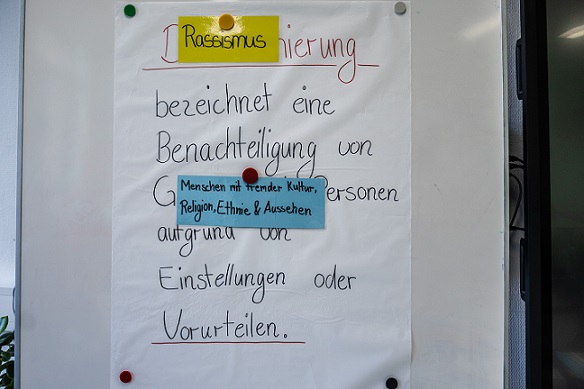 Rassismus
bezeichnet eine
Benachteiligung von
Menschen mit fremder Kultur,
Religion, Ethnie & Aussehen
Personen
aufgrund von
Einstellungen oder
Vorurteilen.